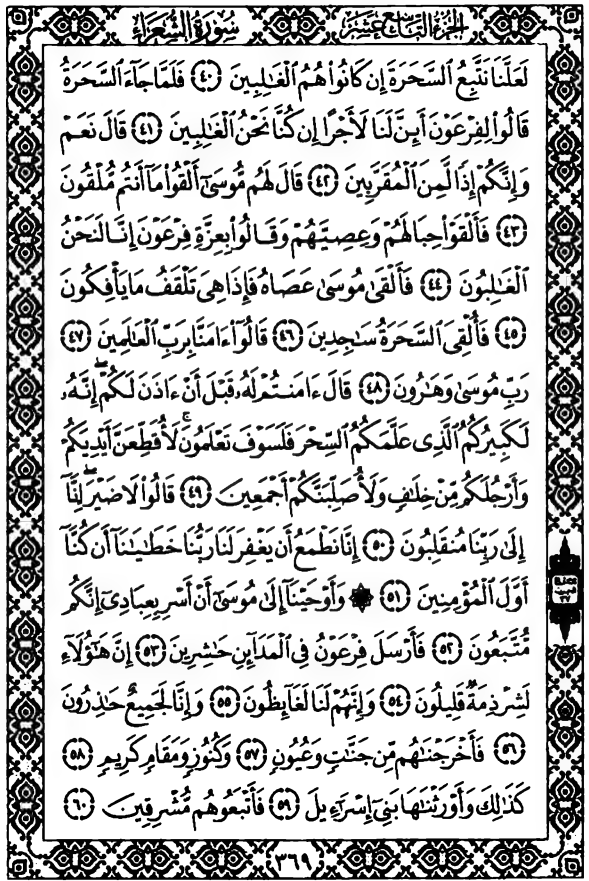 سُورَةُ الشُّعَرَاءِ الجُزْءُ التَّاسِعَ عَشَرَ
لَعَلَّنَا نَتَّبِعُ ٱلسَّحَرَةَ إِن كَانُوا۟ هُمُ ٱلْغَـٰلِبِينَ ﴿٤٠﴾ فَلَمَّا جَآءَ ٱلسَّحَرَةُ
قَالُوا۟ لِفِرْعَوْنَ أَئِنَّ لَنَا لَأَجْرًا إِن كُنَّا نَحْنُ ٱلْغَـٰلِبِينَ ﴿٤١﴾ قَالَ نَعَمْ
وَإِنَّكُمْ إِذًا لَّمِنَ ٱلْمُقَرَّبِينَ ﴿٤٢﴾ قَالَ لَهُم مُّوسَىٰٓ أَلْقُوا۟ مَآ أَنتُم مُّلْقُونَ
﴿٤٣﴾ فَأَلْقَوْا۟ حِبَالَهُمْ وَعِصِيَّهُمْ وَقَالُوا۟ بِعِزَّةِ فِرْعَوْنَ إِنَّا لَنَحْنُ
ٱلْغَـٰلِبُونَ ﴿٤٤﴾ فَأَلْقَىٰ مُوسَىٰ عَصَاهُ فَإِذَا هِىَ تَلْقَفُ مَا يَأْفِكُونَ
﴿٤٥﴾ فَأُلْقِىَ ٱلسَّحَرَةُ سَـٰجِدِينَ ﴿٤٦﴾ قَالُوٓا۟ ءَامَنَّا بِرَبِّ ٱلْعَـٰلَمِينَ ﴿٤٧﴾
رَبِّ مُوسَىٰ وَهَـٰرُونَ ﴿٤٨﴾ قَالَ ءَامَنتُمْ لَهُۥ قَبْلَ أَنْ ءَاذَنَ لَكُمْ ۖ إِنَّهُۥ
لَكَبِيرُكُمُ ٱلَّذِى عَلَّمَكُمُ ٱلسِّحْرَ فَلَسَوْفَ تَعْلَمُونَ ۚ لَأُقَطِّعَنَّ أَيْدِيَكُمْ
وَأَرْجُلَكُم مِّنْ خِلَـٰفٍ وَلَأُصَلِّبَنَّكُمْ أَجْمَعِينَ ﴿٤٩﴾ قَالُوا۟ لَا ضَيْرَ ۖ إِنَّآ
إِلَىٰ رَبِّنَا مُنقَلِبُونَ ﴿٥٠﴾ إِنَّا نَطْمَعُ أَن يَغْفِرَ لَنَا رَبُّنَا خَطَـٰيَـٰنَآ أَن كُنَّآ
أَوَّلَ ٱلْمُؤْمِنِينَ ﴿٥١﴾ ۞ وَأَوْحَيْنَآ إِلَىٰ مُوسَىٰٓ أَنْ أَسْرِ بِعِبَادِىٓ إِنَّكُم
مُّتَّبَعُونَ ﴿٥٢﴾ فَأَرْسَلَ فِرْعَوْنُ فِى ٱلْمَدَآئِنِ حَـٰشِرِينَ ﴿٥٣﴾ إِنَّ هَـٰٓؤُلَآءِ
لَشِرْذِمَةٌ قَلِيلُونَ ﴿٥٤﴾ وَإِنَّهُمْ لَنَا لَغَآئِظُونَ ﴿٥٥﴾ وَإِنَّا لَجَمِيعٌ حَـٰذِرُونَ
﴿٥٦﴾ فَأَخْرَجْنَـٰهُم مِّن جَنَّـٰتٍ وَعُيُونٍ ﴿٥٧﴾ وَكُنُوزٍ وَمَقَامٍ كَرِيمٍ ﴿٥٨﴾
كَذَٰلِكَ وَأَوْرَثْنَـٰهَا بَنِىٓ إِسْرَٰٓءِيلَ ﴿٥٩﴾ فَأَتْبَعُوهُم مُّشْرِقِينَ ﴿٦٠﴾
٣٦٩